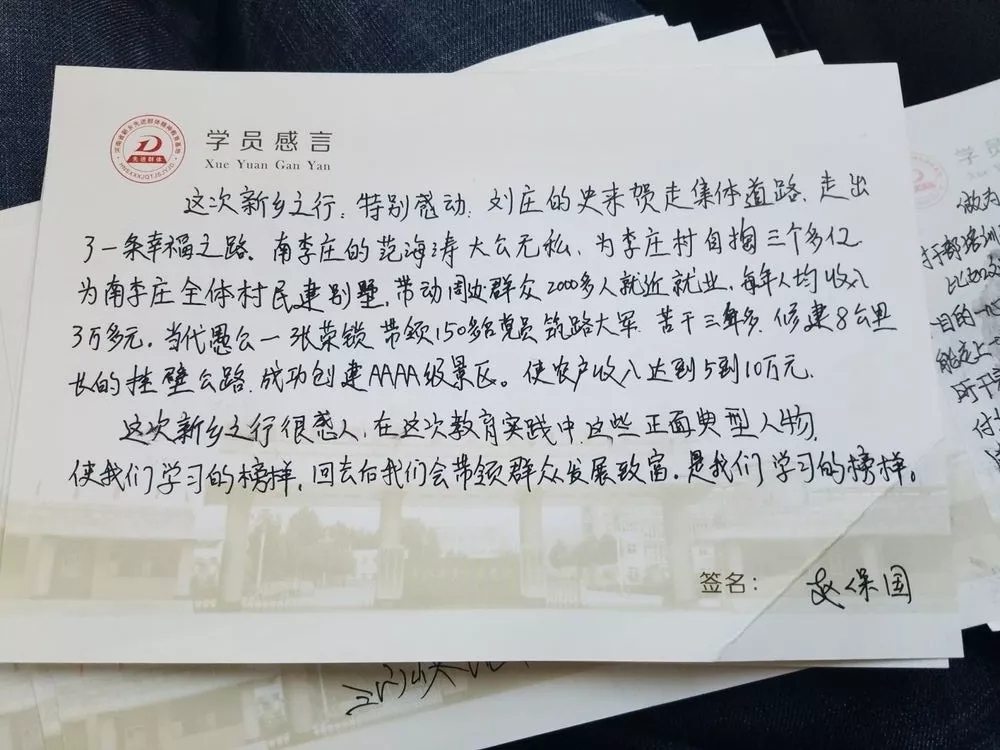 学员感言
Xue Yuan Gan Yan
先进群体
这次新乡之行,特别感动,刘庄的史来贺走集体道路,走出
了一条幸福之路。南李庄的范海涛大公无私,为李庄村自掏三个多亿
为南李庄全体村民建别墅,带动周边群众2000多人就近就业,每年人均收入
3万多元。当代愚公一张荣锁 带领150多名党员筑路大军 苦干三年多,修建8公里
长的挂壁公路,成功创建AAAA级景区。使农户收入达到5到10万元.
这次新乡之行很感人,在这次教育实践中,这些正面典型人物,
使我们学习的榜样,回去后我们会带领群众发展致富,是我们学习的榜样。
签名:
保国
学员
做为
目的一